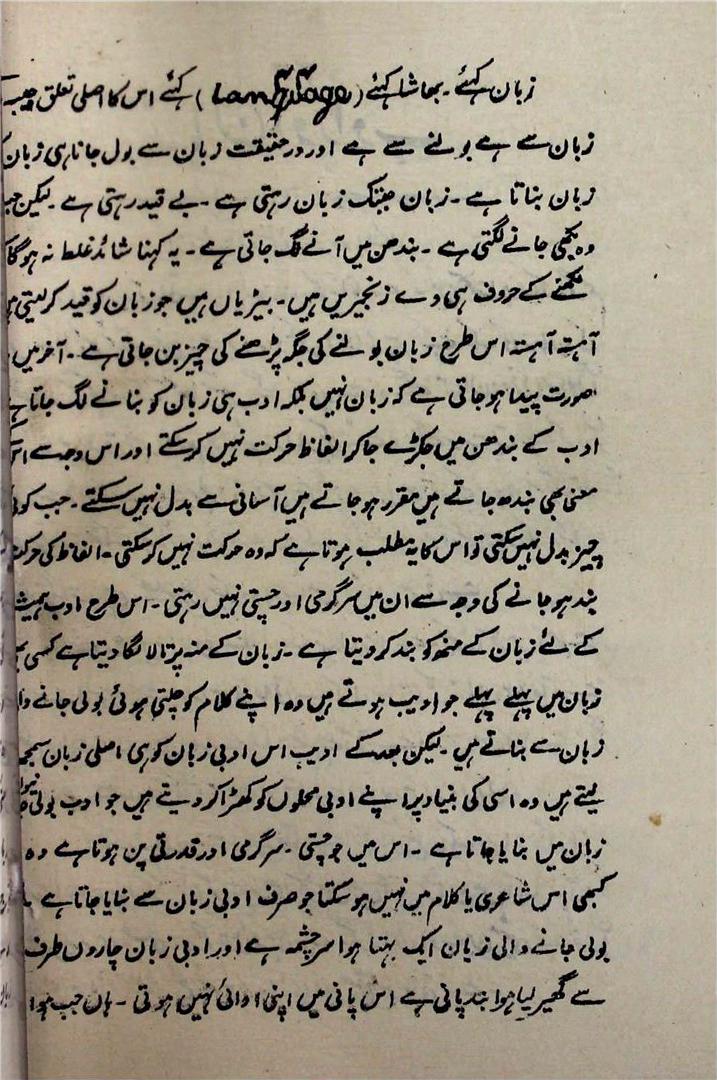 زبان کہئے۔ بھاشا کہئے (Language) کہئے اس کا اصلی تعلق جیب
زبان سے ہے بولنے سے ہے اور در حقیقت زبان سے بول جانا ہی زبان
زبان بناتا ہے۔ زبان جبتک زبان رہتی ہے۔ بے قید رہتی ہے۔ لیکن جب
وہ لکھی جانے لگتی ہے۔ بندھن میں آنے لگ جاتی ہے۔ یہ کہنا شائد غلط نہ ہوگا
لکھنے کے حروف ہی وے زنجیریں ہیں۔ بیڑیاں ہیں جو زبان کو قید کر لیتی
آہستہ آہستہ اس طرح زبان بولنے کی جگہ پڑھنے کی چیز بن جاتی ہے۔ آخر میں
صورت پیدا ہو جاتی ہے کہ زبان نہیں بلکہ ادب ہی زبان کو بنانے لگ جاتا ہے
ادب کے بندھن میں جکڑے جا کر الفاظ حرکت نہیں کر سکتے اور اس وجہ سے
معنی بھی بندھ جاتے ہیں مقرر ہو جاتے ہیں آسانی سے بدل نہیں سکتے۔ جب کوئی
چیز بدل نہیں سکتی تو اس کا یہ مطلب ہوتا ہے کہ وہ حرکت نہیں کر سکتی۔ الفاظ کی حرکت
بند ہو جانے کی وجہ سے ان میں سرگرمی اور چستی نہیں رہتی۔ اس طرح ادب ہمیشہ
کے لئے زبان کے منھ کو بند کر دیتا ہے۔ زبان کے منہ پر تالا لگا دیتا ہے کسی بھی
زبان میں پہلے پہلے جو ادیب ہوتے ہیں وہ اپنے کلام کو چلتی ہوئی بولی جانے والی
زبان سے بناتے ہیں۔ لیکن بعد کے ادیب اس ادبی زبان کو ہی اصلی زبان سمجھ
لیتے ہیں وہ اسی کی بنیاد پر اپنے ادبی محلوں کو کھڑا کر دیتے ہیں جو ادب بولی
زبان میں بنایا جاتا ہے۔ اس میں جو چستی۔ سرگرمی اور قدرتی پن ہوتا ہے وہ
کبھی اس شاعری یا کلام میں نہیں ہو سکتا جو صرف ادبی زبان سے بنایا جاتا ہے
بولی جانے والی زبان ایک بہتا ہوا سرچشمہ ہے اور ادبی زبان چاروں طرف
سے گھیر لیا ہوا بند پانی ہے اس پانی میں اپنی روانی نہیں ہوتی۔ ہاں جب ہوا